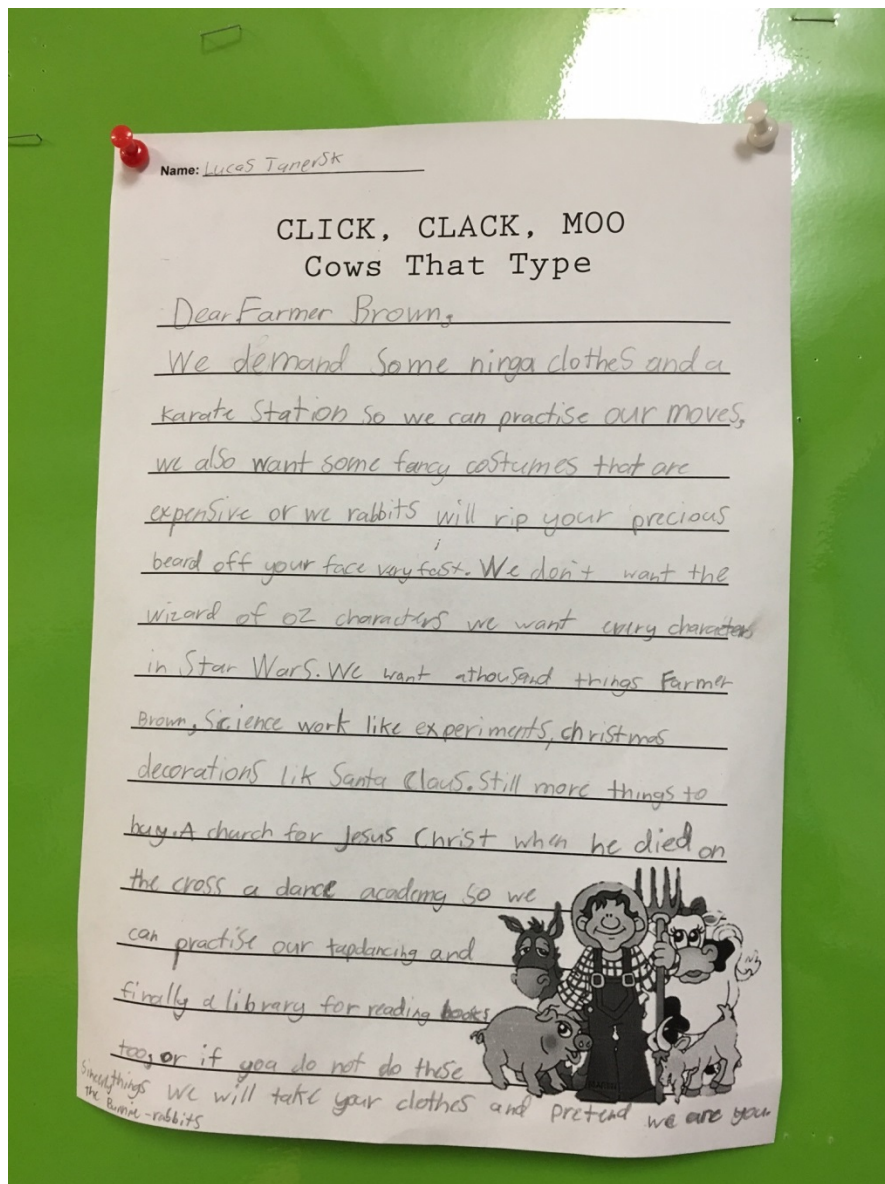 Name: Lucas Tanersk
CLICK, CLACK, MOO
Cows That Type
Dear Farmer Brown,
We demand some ninga clothes and a
karate Station so we can practise our moves,
we also want some fancy costumes that are
expensive or we rabbits will rip your precious
beard off your face very fast. We don't want the
wizard of oz characters we want every characters
in Star Wars. We want athousand things Farmer
Brown, Science work like experiments, christmas
decorations lik Santa Claus. Still more things to
buy. A church for Jesus Christ when he died on
the cross a dance academy so we
can practise our tapdancing and
finally a library for reading books
too, or if you do not do these
things we will take your clothes and pretend we are you
Sincerly
the Bunnie-rabbits